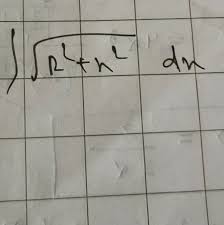 ∫√(R²+x²) dx